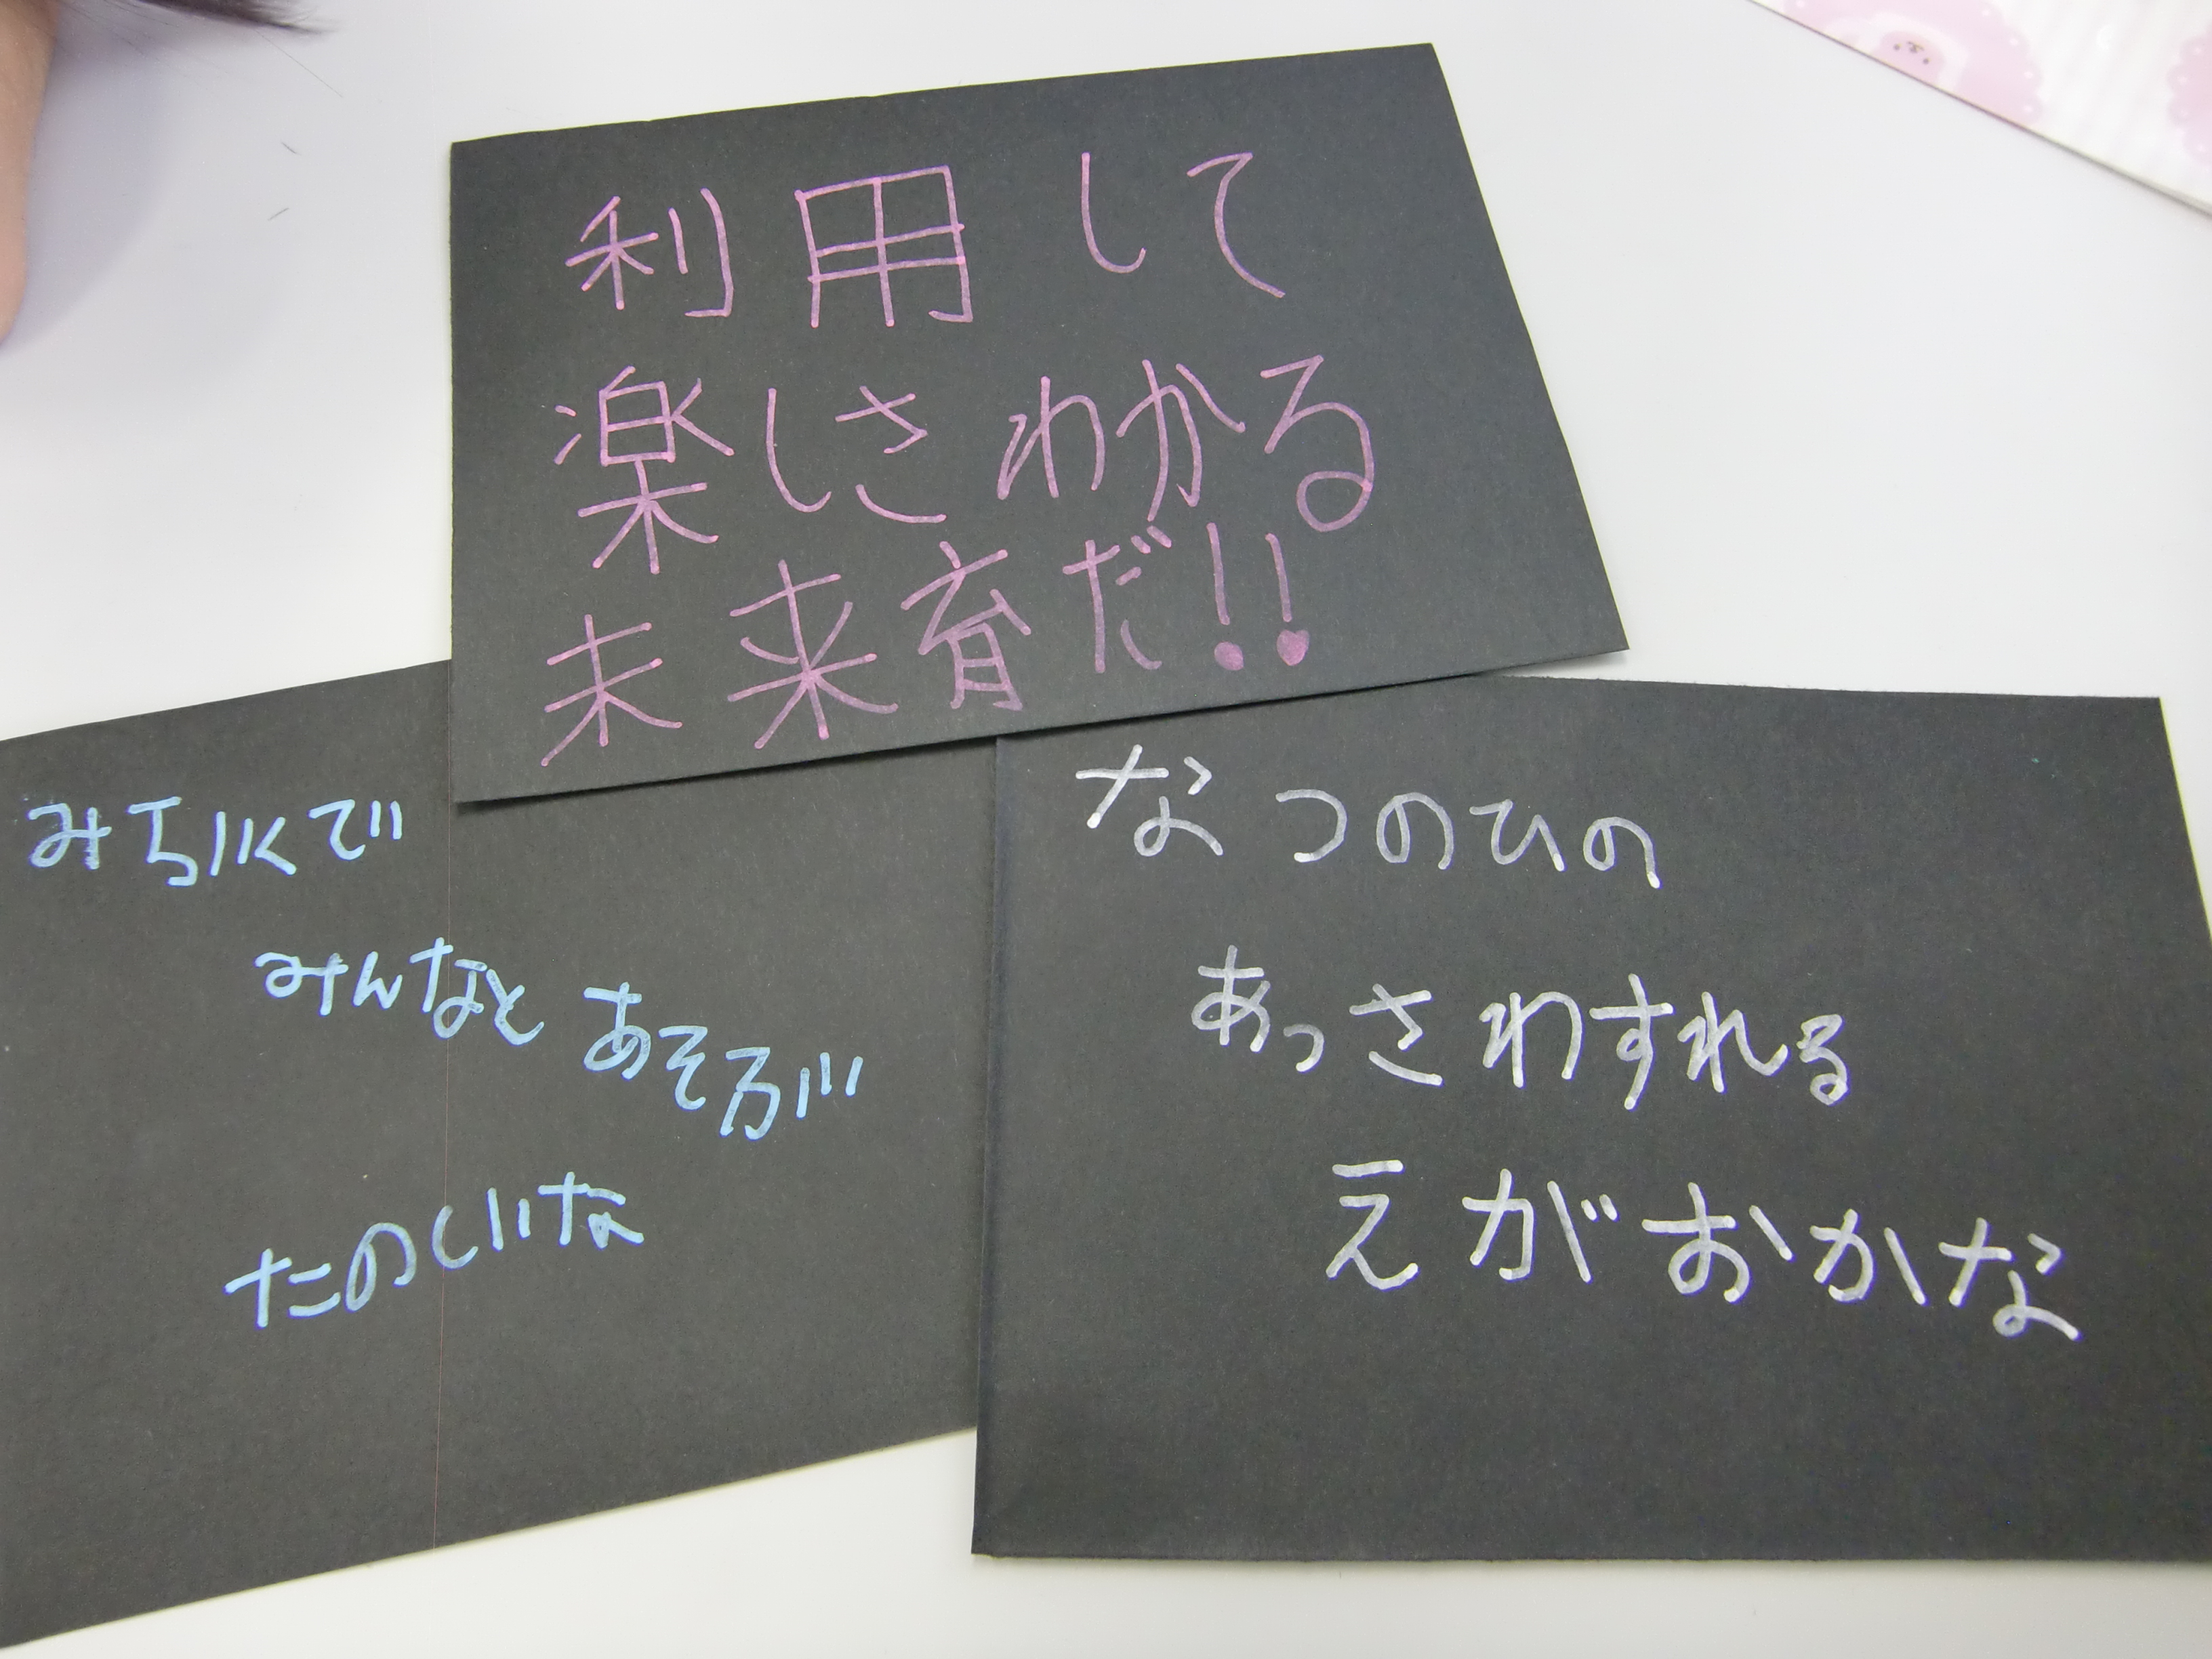 利用して
楽しさわかる
未来育だ!!
みらいくで
みんなとあそぶ
たのしいな
なつのひの
あっさわすれる
えがおかな